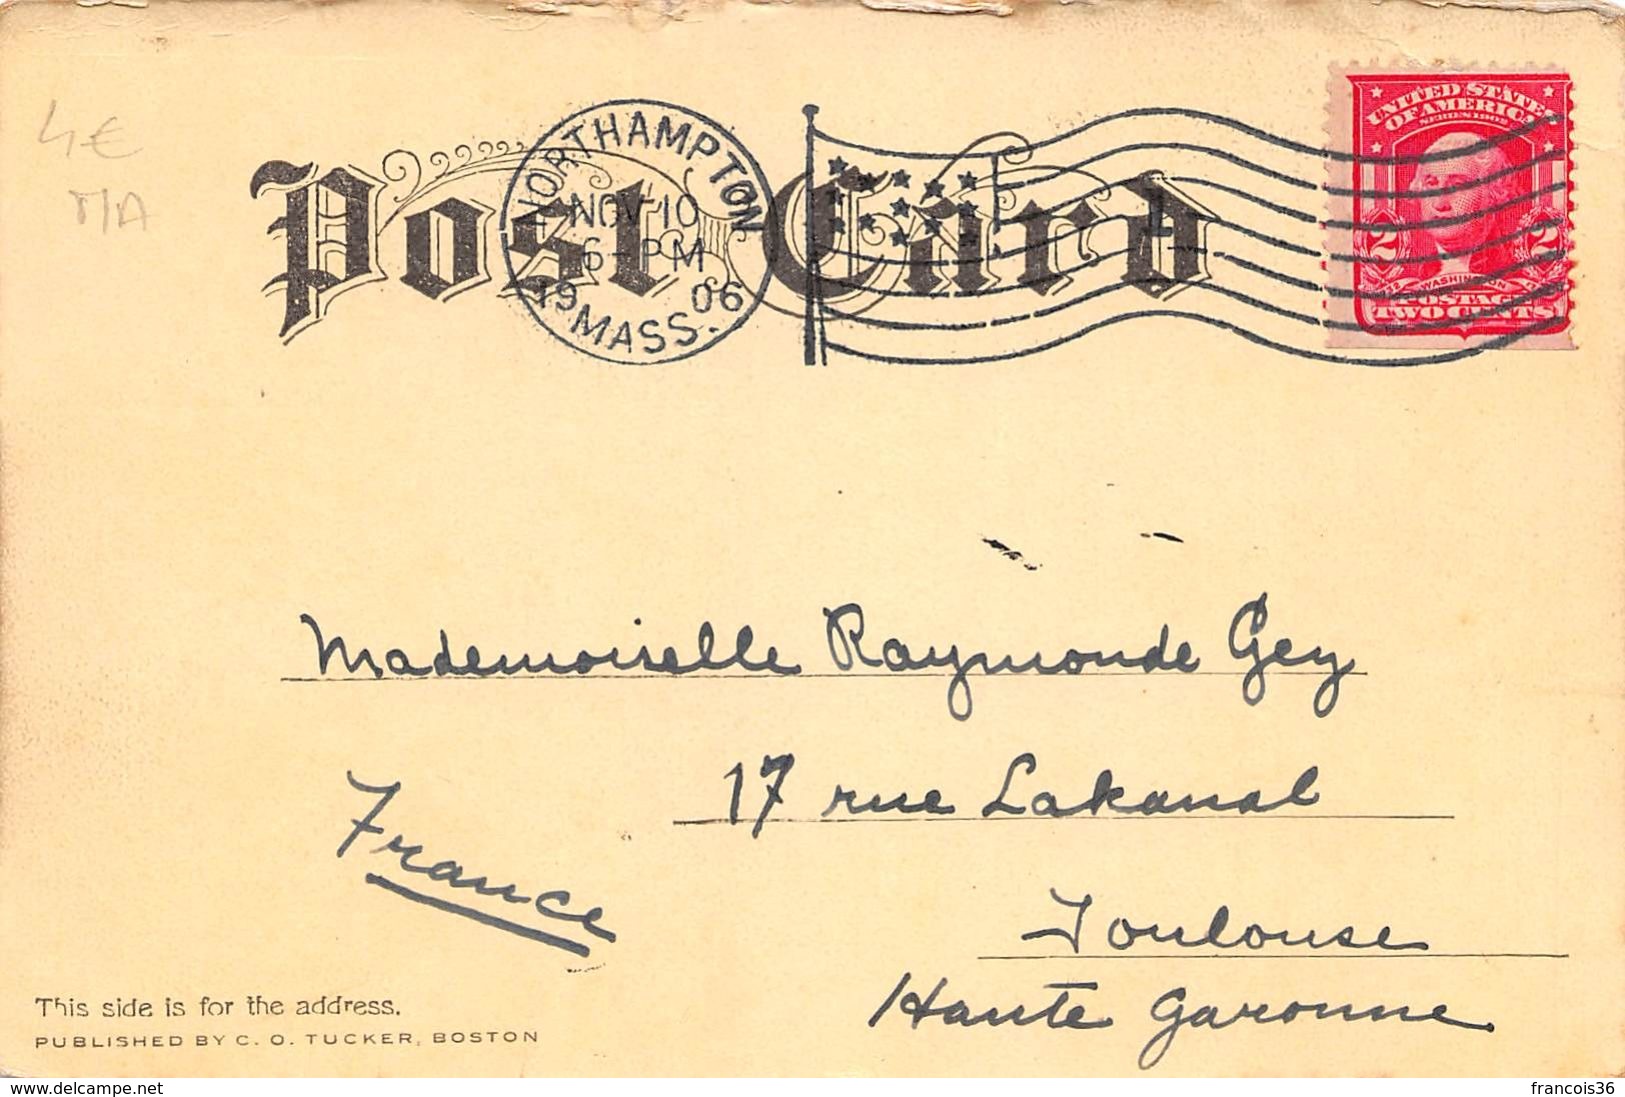 4€
MA
Post Card
NORTHAMPTON
NOV 10
6-PM
1906
MASS.
UNITED STATES
OF AMERICA
SERIES 1902
2 2
WASHINGTON
POSTAGE
TWO CENTS
Mademoiselle Raymonde Gey
17 rue Lakanal
France
Toulouse
Haute Garonne
This side is for the address.
PUBLISHED BY C. O. TUCKER, BOSTON
www.delcampe.net
francois36